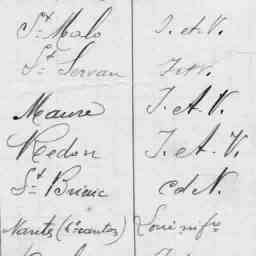 St Malo I. et V.
St Servan I. et V.
Maure I. et V.
Redon I. et V.
St Brieuc C d N.
Nantes (6e canton) Loire infre